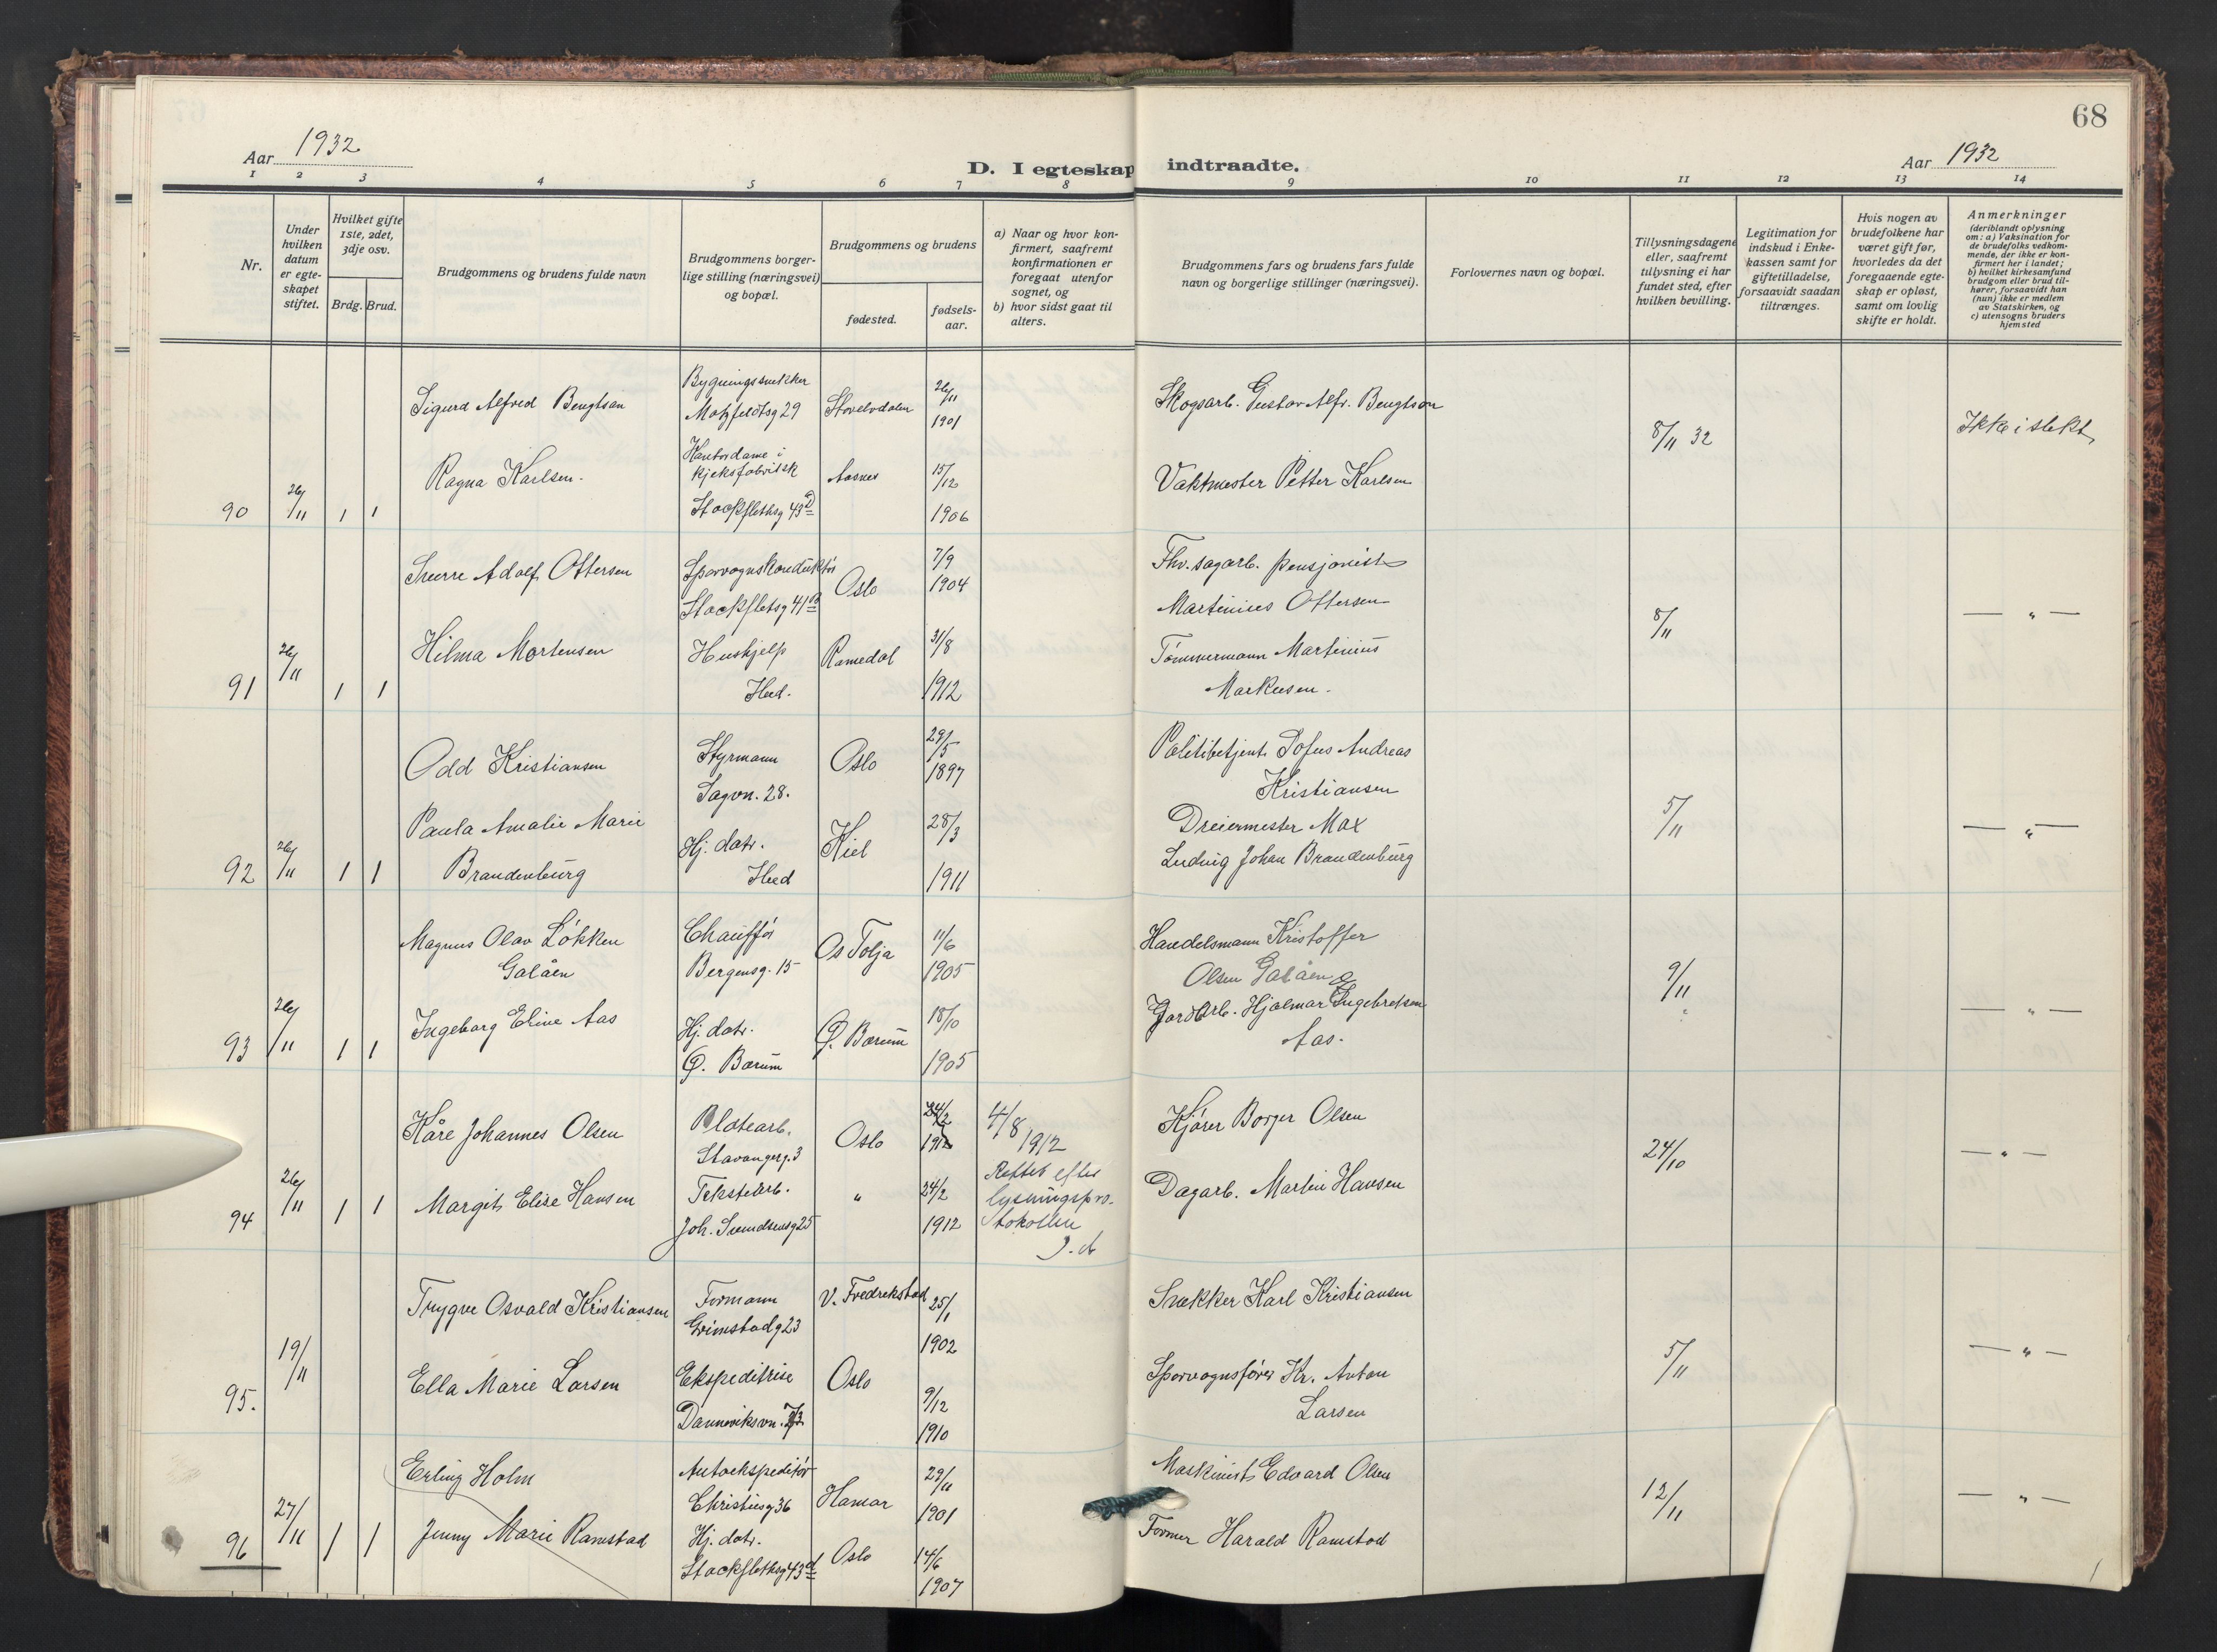 68
Aar 1932
Aar 1932
D. I egteskap indtraadte.
1 2 3 4 5 6 7 8 9 10 11 12 13 14
Nr.
Under hvilken datum er egte-skapet stiftet.
Hvilket gifte 1ste, 2det, 3dje osv.
Brdg. Brud.
Brudgommens og brudens fulde navn
Brudgommens borger-lige stilling (næringsvei) og bopæl.
Brudgommens og brudens
fødested.
fødsels-aar.
a) Naar og hvor kon-firmert, saafremt konfirmationen er foregaat utenfor sognet, og
b) hvor sidst gaat til alters.
Brudgommens fars og brudens fars fulde navn og borgerlige stillinger (næringsvei).
Forlovernes navn og bopæl.
Tillysningsdagene eller, saafremt tillysning ei har fundet sted, efter hvilken bevilling.
Legitimation for indskud i Enke-kassen samt for giftetilladelse, forsaavidt saadan tiltrænges.
Hvis nogen av brudefolkene har været gift før, hvorledes da det foregaaende egte-skap er opløst, samt om lovlig skifte er holdt.
Anmerkninger (deriblandt oplysning om: a) Vaksination for de brudefolks vedkom-mende, der ikke er kon-firmert her i landet; b) hvilket kirkesamfund brudgom eller brud til-hører, forsaavidt han (hun) ikke er medlem av Statskirken, og c) utensogns bruders hjemsted
Sigurd Alfred Bengtson Bygningssnekker Motzfeldtsg 29 26/11 1901 Skogsarb. Gustav Alfr. Bengtson
8/11 32 Ikke i slekt
90 26/11 1 1 Ragna Karlsen. Kontordame i kjeksfabrikk Stockflethsg 43 d Aasnes 15/12 1906 Vaktmester Petter Karlsen
Sverre Adolf Ottersen Sporvognskonduktør Stockfletsg 41 B Oslo 7/9 1904 Fhv. sagarb. pensjonist Martinius Ottersen
8/11 — " —
91 26/11 1 1 Hilma Mortensen Hushjelp Ibid. Ramedal 31/8 1912 Tømmermann Martinius Markusen.
Odd Kristiansen Styrmann Sagvn. 28. Oslo 29/5 1897 Politibetjent Sofus Andreas Kristiansen
5/11 — " —
92 26/11 1 1 Paula Amalie Marie Brandenburg Hj. datr. Ibid Kiel 28/3 1911 Dreiermester Max Ludvig Johan Brandenburg
Magnus Olav Løkken Galåen Chauffør Bergensg. 15 Os Tolja 11/6 1905 Handelsmann Kristoffer Olsen Galåen
9/11 — " —
93 26/11 1 1 Ingeborg Eline Aas Hj. datr. Ø. Bærum Ø. Bærum 18/10 1905 Gardarb. Hjalmar Ingebretsen Aas.
Kåre Johannes Olsen Platearb. Stavangerg. 3 Oslo 24/2 1912 4/8 1912 Kjører Borger Olsen
Rettet efter lysningsprotokollen
24/10 — " —
94 26/11 1 1 Margit Elise Hansen Tekstilarb. Joh. Svendsensg 25 " 24/2 1912 Dagarb. Martin Hansen
Trygve Osvald Kristiansen Formann Grimstadg 23 V. Fredrekstad 25/1 1902 Snekker Karl Kristiansen
5/11 — " —
95. 19/11 Ella Marie Larsen Ekspeditrise Oslo 9/12 1910 Sporvognsfører Kr. Anton Larsen
Danneviksvn.
Erling Holm Autoekspeditør Christiesg 36 Hamar 29/11 1901 Maskinist Edvard Olsen
12/11 — " —
96 27/11 1 1 Jenny Marie Ramstad Hj. datr. Stockflethsg 43 d Oslo 14/6 1907 Former Harald Ramstad